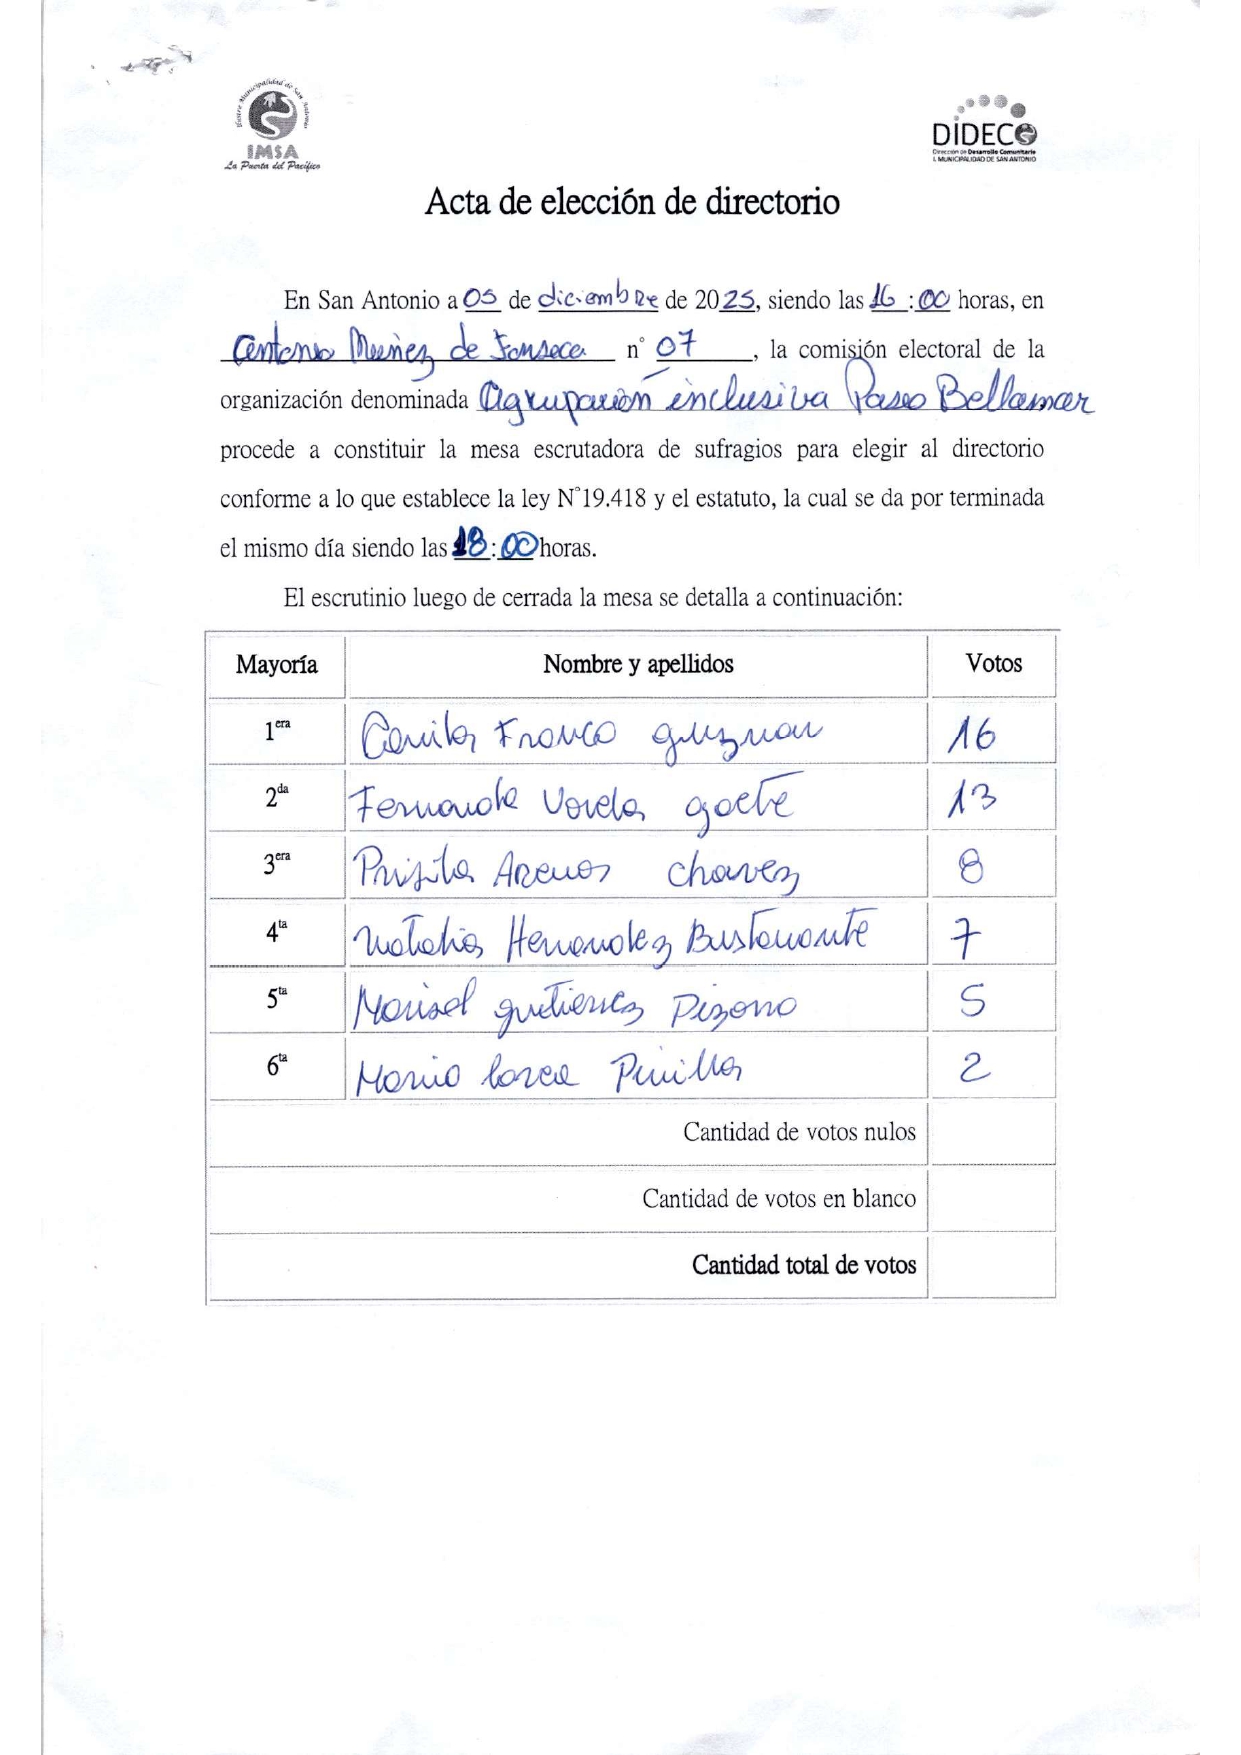 Ilustre Municipalidad de San Antonio
IMSA
La Puerta del Pacífico
DIDECO
Dirección de Desarrollo Comunitario
I. MUNICIPALIDAD DE SAN ANTONIO
Acta de elección de directorio
En San Antonio a 05 de diciembre de 2025, siendo las 16:00 horas, en
Antonio Muñez de Fonseca n° 07, la comisión electoral de la
organización denominada Agrupación inclusiva Paseo Bellamar
procede a constituir la mesa escrutadora de sufragios para elegir al directorio
conforme a lo que establece la ley N°19.418 y el estatuto, la cual se da por terminada
el mismo día siendo las 18:00 horas.
El escrutinio luego de cerrada la mesa se detalla a continuación:
Mayoría Nombre y apellidos Votos
1era Camila Franco guzman 16
2da Fernanda Varela goete 13
3era Prisila Arenas chavez 8
4ta Natalia Hernandez Bustamante 7
5ta Marisol gutierrez Pizarro 5
6ta Mario lorca Pinilla 2
Cantidad de votos nulos
Cantidad de votos en blanco
Cantidad total de votos